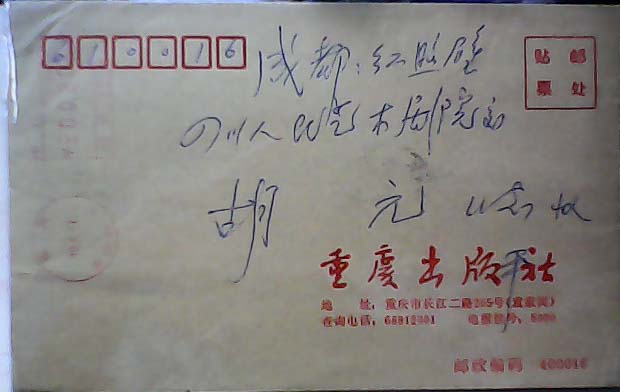 610016
贴 邮
票 处
成都:红照壁
四川人民艺术剧院
胡 元 收
重庆出版社
地 址: 重庆市长江二路205号(袁家岗)
查询电话: 68812901 电报挂号:
邮政编码 400016